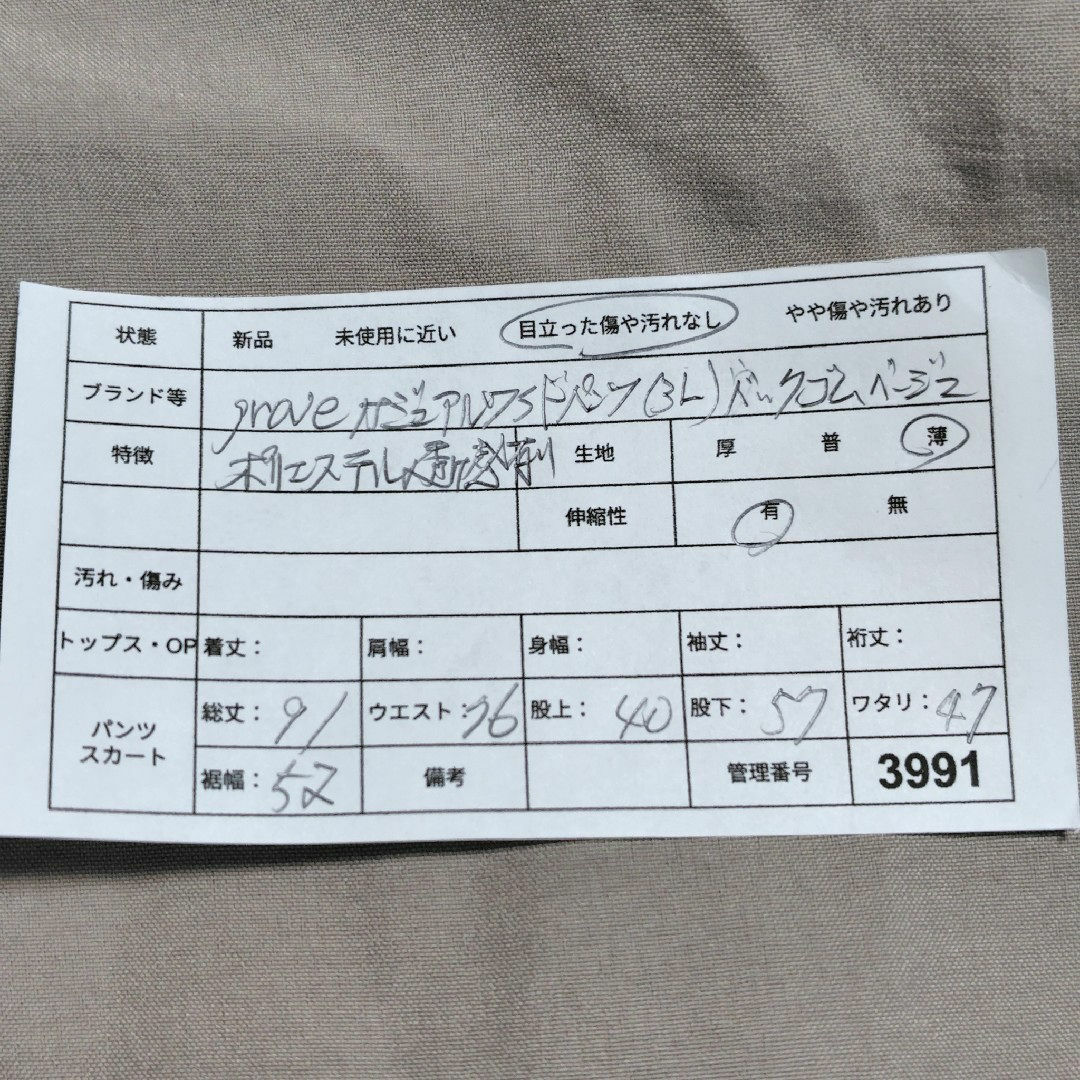 状態 新品 未使用に近い 目立った傷や汚れなし やや傷や汚れあり
ブランド等 grove カジュアルワイドパンツ(3L)バックゴムベージュ
特徴 ポリエステル 生地 厚 普 薄
伸縮性 有 無
汚れ・傷み
トップス・OP 着丈: 肩幅: 身幅: 袖丈: 裄丈:
パンツ スカート 総丈: 91 ウエスト: 76 股上: 40 股下: 57 ワタリ: 47
裾幅: 52 備考 管理番号 3991